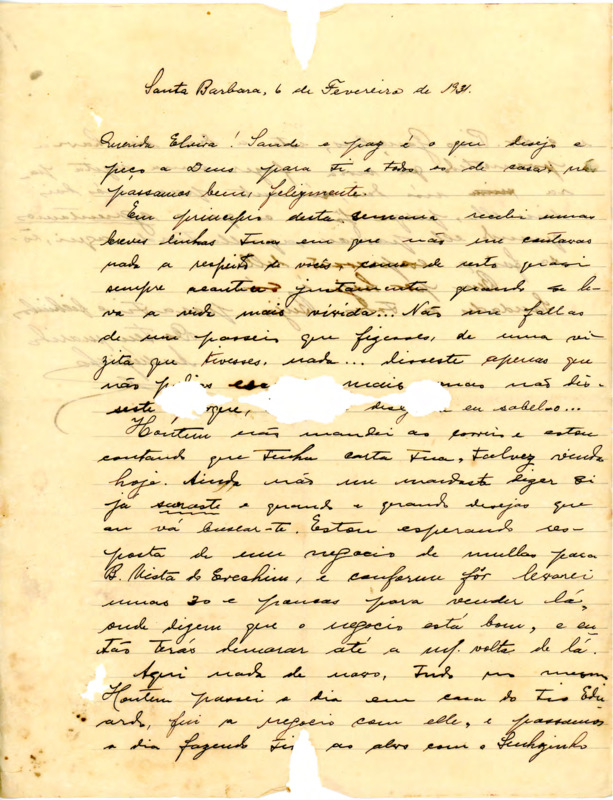 Santa Barbara, 6 de Fevereiro de 1931.
Querida Elvira! Saude e paz é o que desejo e
peço a Deus para ti e todos os de casa, nós
passamos bem, felizmente.
Em principio desta semana recebi umas
breves linhas tuas em que não me contavas
nada a respeito de vocês, como de serto quasi
sempre acontece justamente quando se le-
va a vida mais vivida... Não me fallas
de um passeio que fizesses, de uma vi-
zita que tivesses, nada... disseste apenas que
não mais mas não dis-
seste eu sabel-o...
Hontem não mandei ao correio e estou
contando que tenha carta tua, talvez venha
hoje. Ainda não me mandaste dizer si
ja saraste e quando e quando desejas que
eu vá buscar-te. Estou esperando res-
posta de um negocio de mullas para
B. Vista do Erechim, e conforme fôr levarei
umas 30 e poucas para vender lá,
onde dizem que o negocio está bom, e en-
tão terás demorar até a m/. volta de lá.
Aqui nada de novo, tudo no mesmo
Hontem passei o dia em casa do tio Edu-
ardo, fui a negocio com elle, e passamos
o dia fazendo ao alvo com o Senhozinho